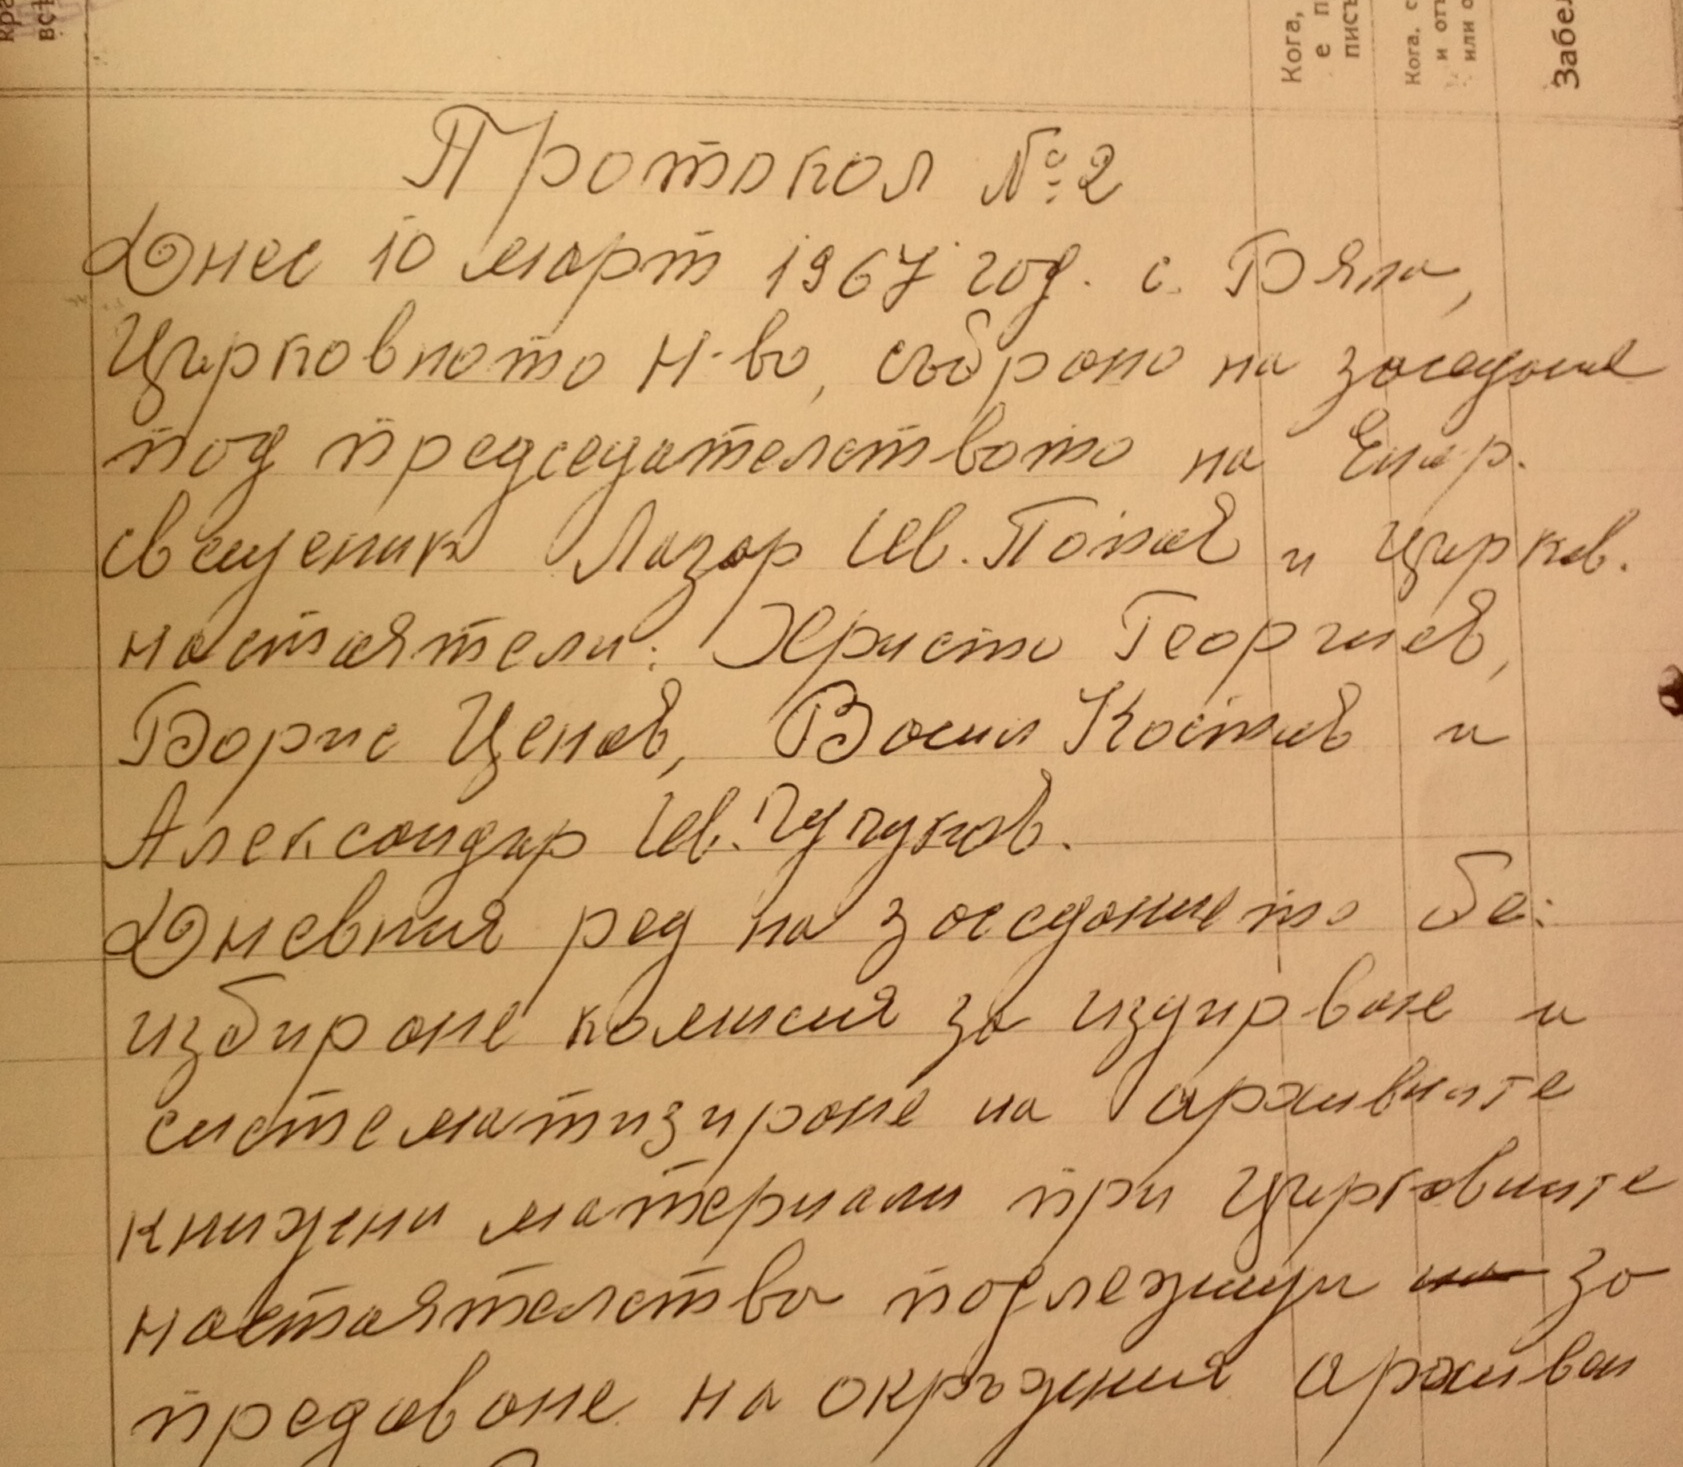 кра
вст
Кога,
е п
писъ
Кога. с
и отъ
или о
Забел
Протокол №2
Днес 10 март 1967 год. с. Бяла,
Църковното н-во, събрано на заседание
под председателството на Енор.
свещеник Лазар Ив. Попов и църков.
настоятели: Христо Георгиев,
Борис Ценов, Васил Костов и
Александър Ив.
Дневния ред на заседанието бе:
избиране комисия за издирване и
систематизиране на архивните
книжни материали при църковните
настоятелства подлежащи на за
предаване на окръжния архивен